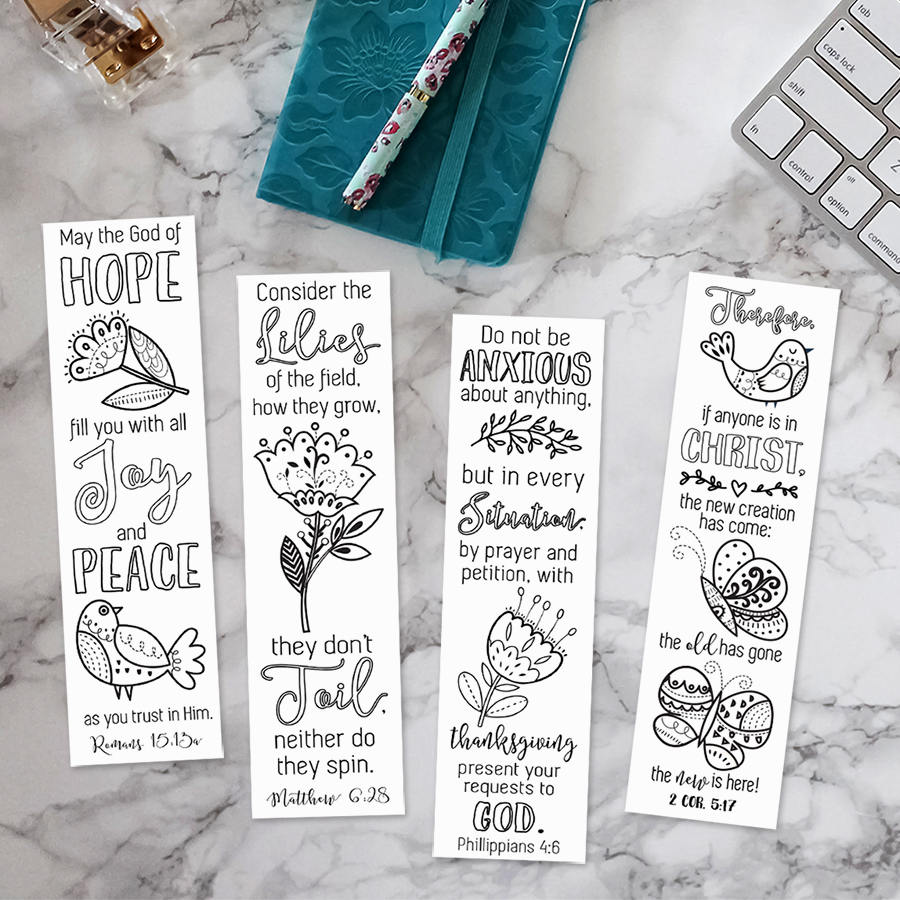 May the God of
HOPE
fill you with all
Joy
and
PEACE
as you trust in Him.
Romans 15:13a
Consider the
Lilies
of the field,
how they grow,
they don't
Toil,
neither do
they spin.
Matthew 6:28
Do not be
ANXIOUS
about anything,
but in every
Situation,
by prayer and
petition, with
thanksgiving
present your
requests to
GOD.
Phillippians 4:6
Therefore,
if anyone is in
CHRIST,
the new creation
has come:
the old has gone
the new is here!
2 COR. 5:17
tab
caps lock
shift
fn
control
alt
option
command
Z